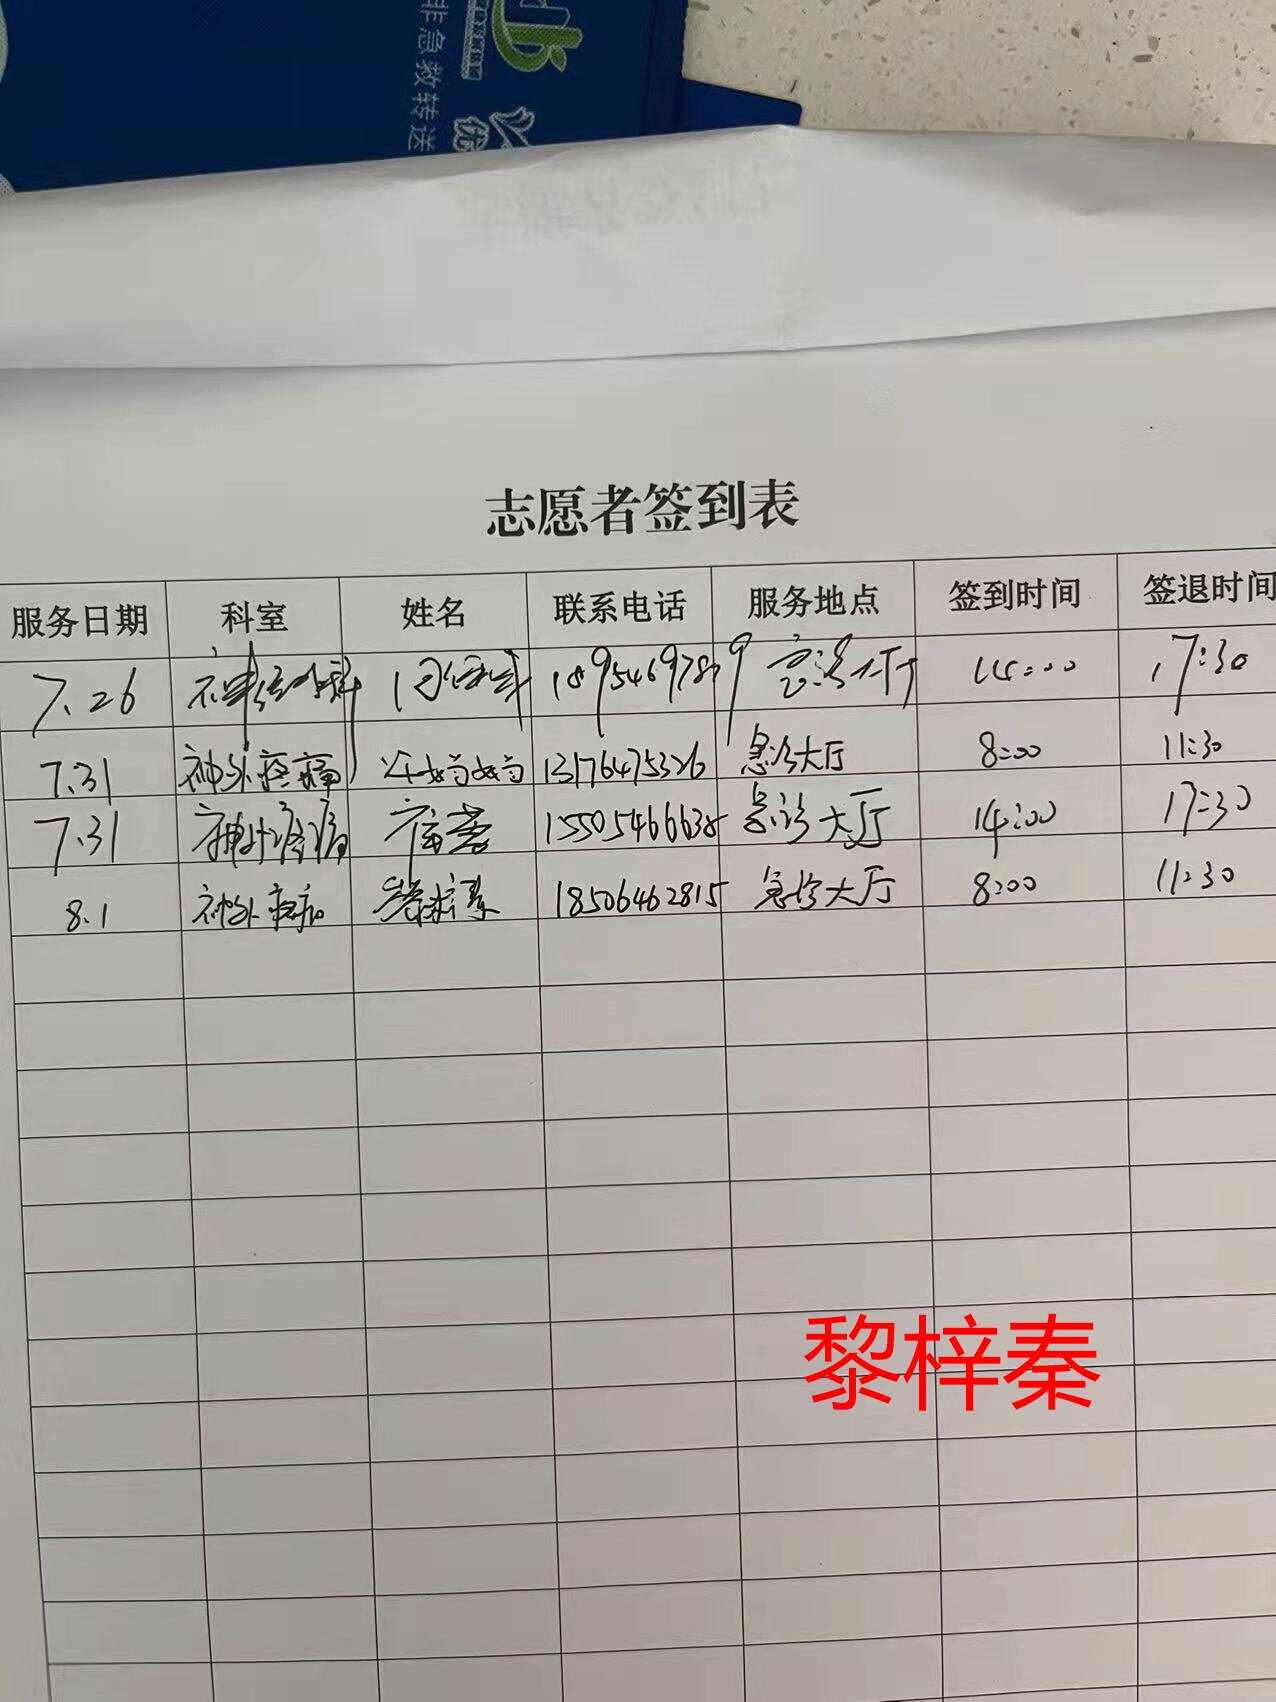 非急救转送
志愿者签到表
服务日期 科室 姓名 联系电话 服务地点 签到时间 签退时间
7.26 急诊大厅 14:00 17:30
7.31 神外疼痛 13176475326 急诊大厅 8:00 11:30
7.31 神外疼痛 15505466638 急诊大厅 14:00 17:30
8.1 神外疼痛 18506462815 急诊大厅 8:00 11:30
黎梓秦